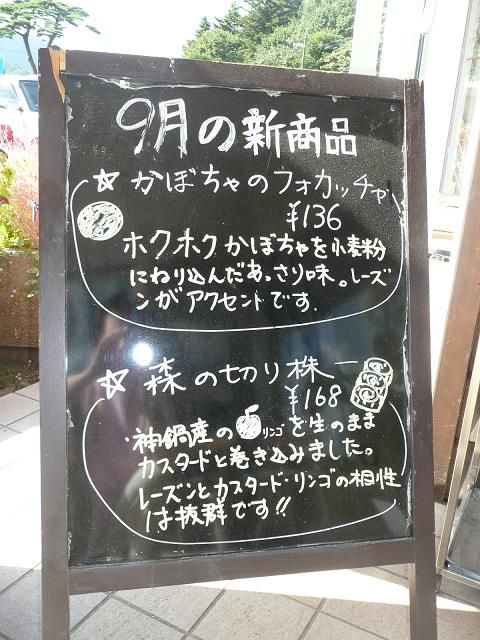 9月の新商品
☆ かぼちゃのフォカッチャ
¥136
ホクホクかぼちゃを小麦粉
にねり込んだあっさり味。レーズ
ンがアクセントです.
☆ 森の切り株
¥168
・神鍋産の リンゴを生のまま
カスタードと巻き込みました。
レーズンとカスタード・リンゴの相性
は抜群です!!